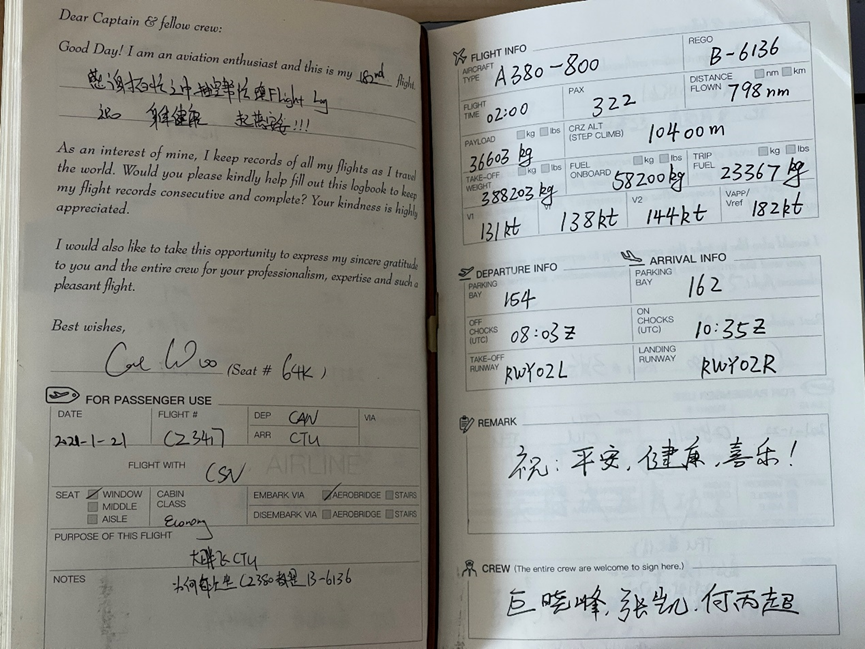 Dear Captain & fellow crew:
Good Day! I am an aviation enthusiast and this is my 182nd flight.
感谢 Flight Log
祝 身体健康 !!!
As an interest of mine, I keep records of all my flights as I travel
the world. Would you please kindly help fill out this logbook to keep
my flight records consecutive and complete? Your kindness is highly
appreciated.
I would also like to take this opportunity to express my sincere gratitude
to you and the entire crew for your professionalism, expertise and such a
pleasant flight.
Best wishes,
(Seat # 64K )
FOR PASSENGER USE
DATE FLIGHT # DEP CAN VIA
2021-1-21 CZ3417 ARR CTU
FLIGHT WITH CSN
SEAT WINDOW MIDDLE AISLE
CABIN CLASS Economy
EMBARK VIA AEROBRIDGE STAIRS
DISEMBARK VIA AEROBRIDGE STAIRS
PURPOSE OF THIS FLIGHT
大胖飞CTU
NOTES
为何每次坐CZ380都是B-6136
FLIGHT INFO
AIRCRAFT TYPE A380-800 REGO B-6136
FLIGHT TIME 02:00 PAX 322 DISTANCE FLOWN nm km 798nm
PAYLOAD kg lbs 36603 kg CRZ ALT (STEP CLIMB) 10400m
TAKE-OFF WEIGHT kg lbs 388203 kg FUEL ONBOARD kg lbs 58200kg TRIP FUEL kg lbs 23367 kg
V1 131kt 138kt V2 144kt VAPP/Vref 182kt
DEPARTURE INFO
PARKING BAY 154
OFF CHOCKS (UTC) 08:03Z
TAKE-OFF RUNWAY RWY02L
ARRIVAL INFO
PARKING BAY 162
ON CHOCKS (UTC) 10:35Z
LANDING RUNWAY RWY02R
REMARK
祝:平安,健康,喜乐!
CREW (The entire crew are welcome to sign here.)
巨晓峰,张凯,何丙超